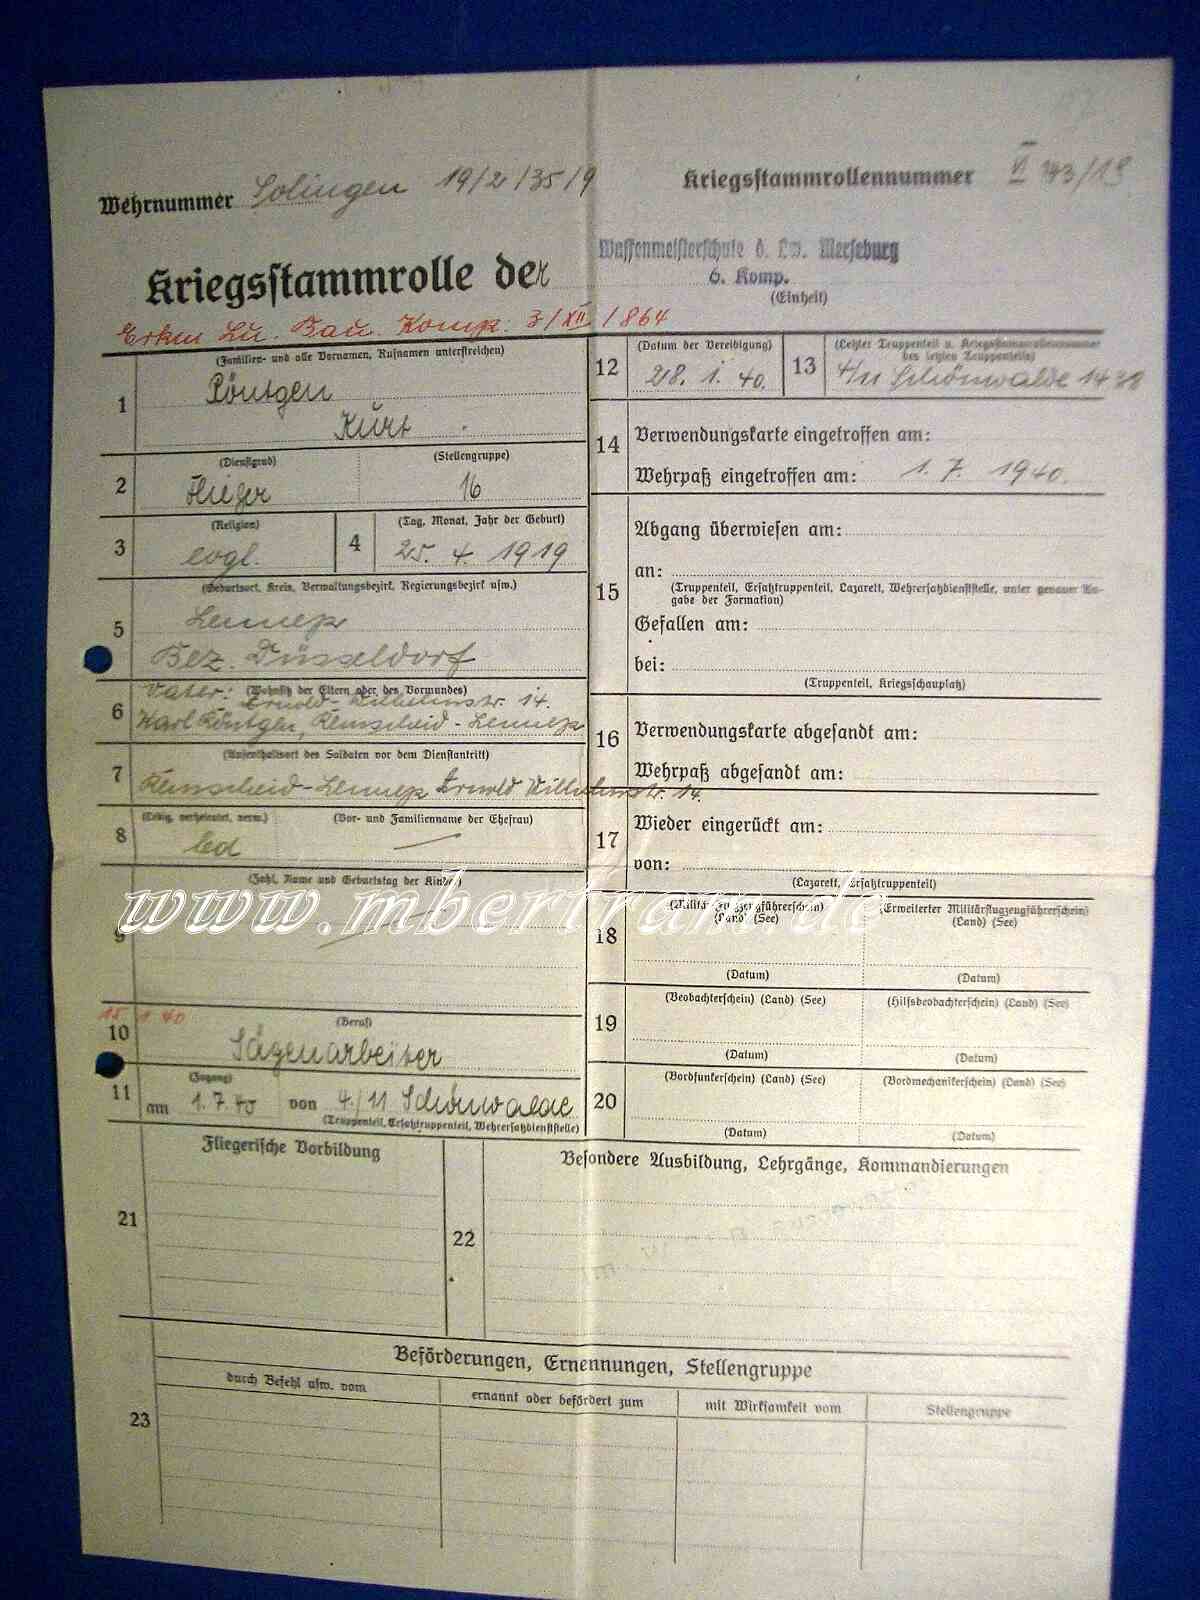 Wehrnummer Solingen 19/2/35/9
Kriegsstammrollennummer VI /13
Waffenmeisterschule d. Lw. Merseburg
Kriegsstammrolle der 6. Komp.
(Einheit)
Lu. Bau. Komp. 3/XII /864
1 (Familien- und alle Vornamen, Rufnamen unterstreichen)
Röntgen
Kurt
2 (Dienstgrad) (Stellengruppe)
Flieger 16
3 (Religion) 4 (Tag, Monat, Jahr der Geburt)
evgl. 25. 4. 1919
5 (Geburtsort, Kreis, Verwaltungsbezirk, Regierungsbezirk usw.)
Lennep
Bez. Düsseldorf
6 Vater: (Wohnsitz der Eltern oder des Vormundes)
Arnold-Wilhelmstr. 14.
Karl Röntgen, Remscheid-Lennep
7 (Aufenthaltsort des Soldaten vor dem Dienstantritt)
Remscheid-Lennep Arnold Wilhelmstr. 14.
8 (Ledig, verheiratet, verw.) (Vor- und Familienname der Ehefrau)
led —
9 (Zahl, Name und Geburtstag der Kinder)
www.mbertram.de
15 1 40
10 (Beruf)
Sägenarbeiter
11 (Zugang)
am 1.7.40 von 4./11 Schönwalde
(Truppenteil, Ersatztruppenteil, Wehrersatzdienststelle)
12 (Datum der Vereidigung)
28. 1. 40.
13 (Letzter Truppenteil u. Kriegsstammrollennummer
des letzten Truppenteils)
4/11 Schönwalde
14 Verwendungskarte eingetroffen am:
Wehrpaß eingetroffen am: 1. 7. 1940.
15 Abgang überwiesen am:
an:
(Truppenteil, Ersatztruppenteil, Lazarett, Wehrersatzdienststelle, unter genauer An-
gabe der Formation)
Gefallen am:
bei:
(Truppenteil, Kriegsschauplatz)
16 Verwendungskarte abgesandt am:
Wehrpaß abgesandt am:
17 Wieder eingerückt am:
von:
(Lazarett, Ersatztruppenteil)
18 (Militärflugzeugführerschein) (Erweiterter Militärflugzeugführerschein)
(Land) (See) (Land) (See)
(Datum) (Datum)
19 (Beobachterschein) (Land) (See) (Hilfsbeobachterschein) (Land) (See)
(Datum) (Datum)
20 (Bordfunkerschein) (Land) (See) (Bordmechanikerschein) (Land) (See)
(Datum) (Datum)
21 Fliegerische Vorbildung
22 Besondere Ausbildung, Lehrgänge, Kommandierungen
23 Beförderungen, Ernennungen, Stellengruppe
durch Befehl usw. vom ernannt oder befördert zum mit Wirksamkeit vom Stellengruppe